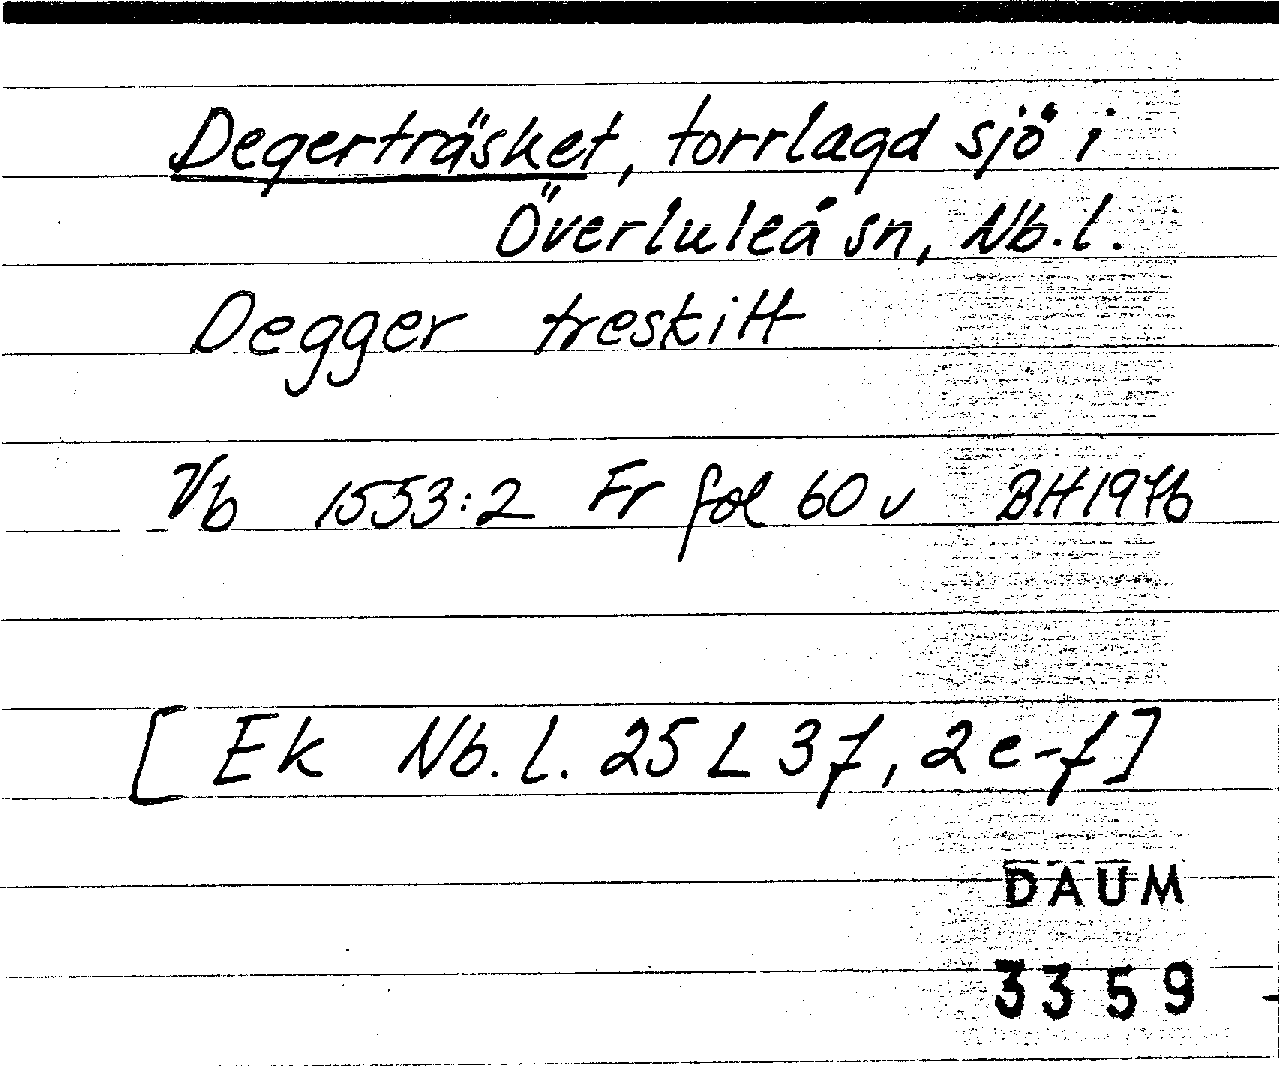 Degerträsket, torrlagd sjö i
Överluleå sn, Nb.l.
Degger treskitt
Vb 1553:2 Fr fol 60 v BH 1976
[Ek Nb.l. 25 L 37, 2 e-f]
DAUM
3359